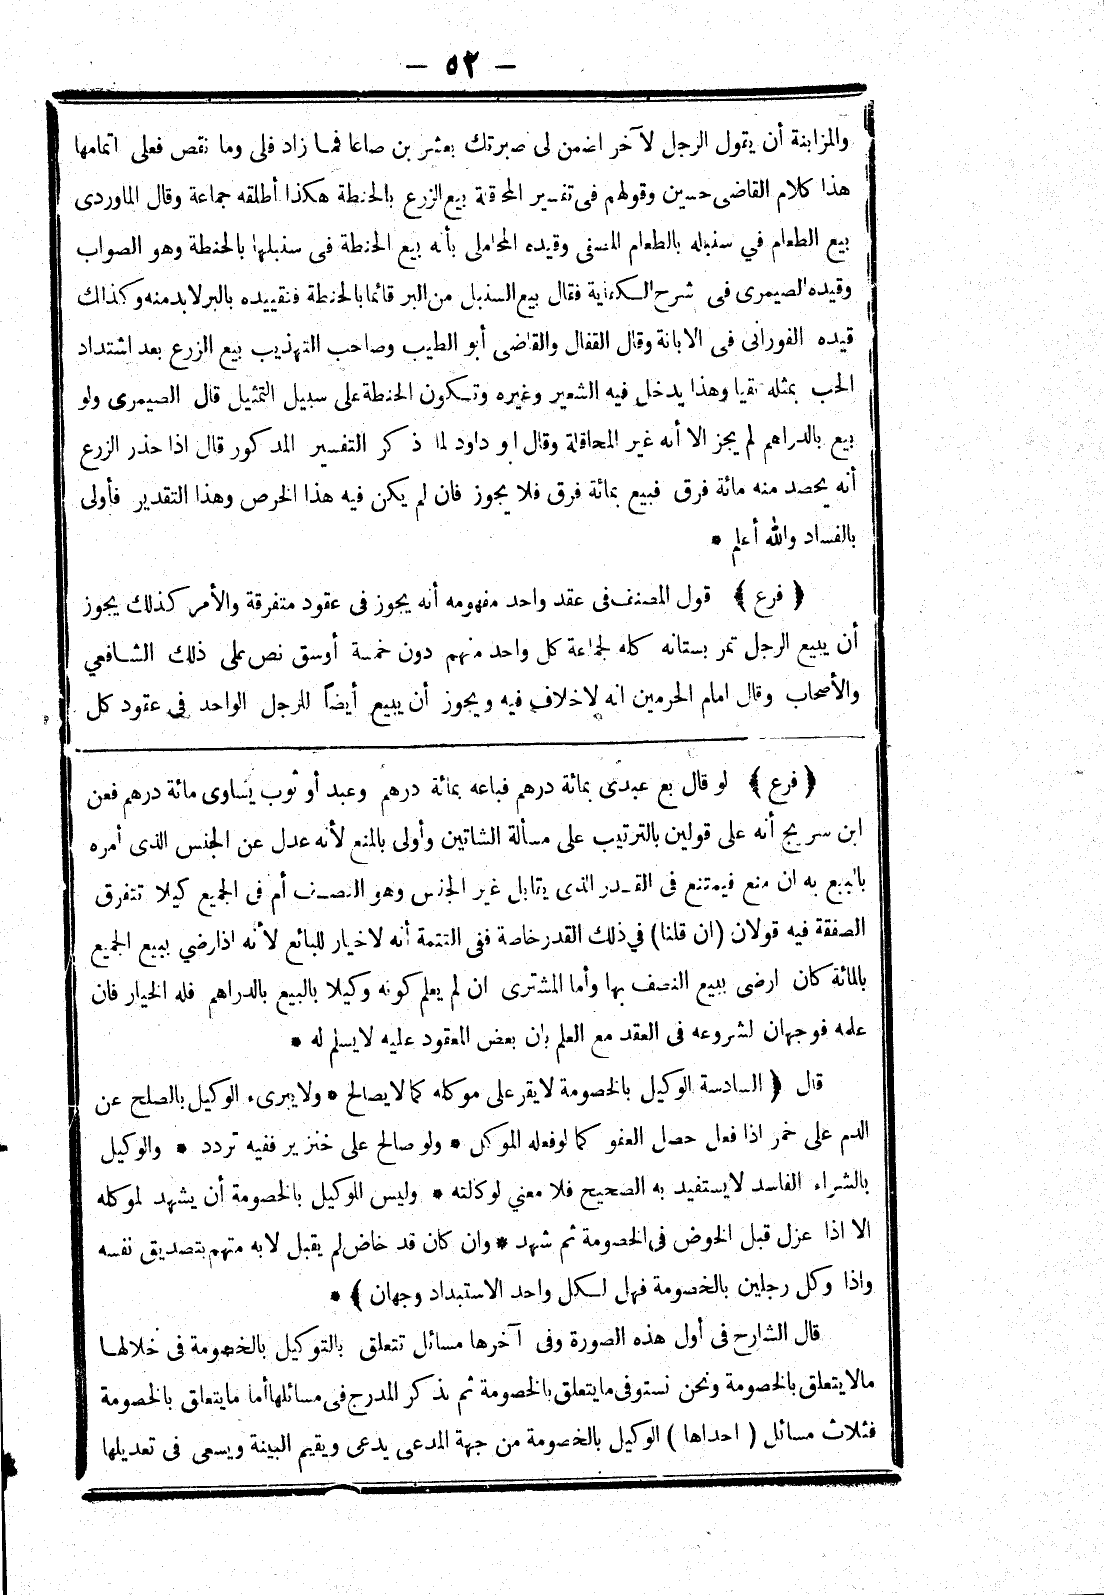 — ٥٢ —
والمزابنة أن يقول الرجل لآخر اضمن لى صبرتك بعشرين صاعا فما زاد فلى وما نقص فعلى اتمامها
هذا كلام القاضى حسين وقولهم فى تفسير المحاقلة بيع الزرع بالحنطة هكذا أطلقه جماعة وقال الماوردى
بيع الطعام في سنبله بالطعام المصفى وقيده المحاملى بأنه بيع الحنطة فى سنبلها بالحنطة وهو الصواب
وقيده الصيمرى فى شرح الكفاية فقال بيع السنبل من البر قائما بالحنطة فتقييده بالبر لابد منه وكذلك
قيده الفورانى فى الابانة وقال القفال والقاضى أبو الطيب وصاحب التهذيب بيع الزرع بعد اشتداد
الحب بمثله نقيا وهذا يدخل فيه الشعير وغيره وتكون الحنطة على سبيل التمثيل قال الصيمرى ولو
بيع بالدراهم لم يجز الا أنه غير المحاقلة وقال ابو داود لما ذكر التفسير المذكور قال اذا حذر الزرع
أنه يحصد منه مائة فرق فبيع بمائة فرق فلا يجوز فان لم يكن فيه هذا الخرص وهذا التقدير فأولى
بالفساد والله أعلم *
﴿ فرع ﴾ قول المصنف فى عقد واحد مفهومه أنه يجوز فى عقود متفرقة والأمر كذلك يجوز
أن يبيع الرجل تمر بستانه كله لجماعة كل واحد منهم دون خمسة أوسق نص على ذلك الشافعي
والأصحاب وقال امام الحرمين انه لاخلاف فيه ويجوز أن يبيع أيضاً للرجل الواحد فى عقود كل
﴿ فرع ﴾ لو قال بع عبدى بمائة درهم فباعه بمائة درهم وعبد أو ثوب يساوى مائة درهم فعن
ابن سريج أنه على قولين بالترتيب على مسألة الشاتين وأولى بالمنع لأنه عدل عن الجنس الذى أمره
بالبيع به ان منع فيمتنع فى القدر الذى يقابل غير الجنس وهو النصف أم فى الجميع كيلا تتفرق
الصفقة فيه قولان (ان قلنا) في ذلك القدر خاصة ففى التتمة أنه لاخيار للبائع لأنه اذا رضي ببيع الجميع
بالمائة كان ارضى ببيع النصف بها وأما المشترى ان لم يعلم كونه وكيلا بالبيع بالدراهم فله الخيار فان
علمه فوجهان لشروعه فى العقد مع العلم بان بعض المعقود عليه لايسلم له *
قال ﴿ السادسة الوكيل بالخصومة لايقر على موكله كما لايصالح * ولايبرىء الوكيل بالصلح عن
الدم على خمر اذا فعل حصل العفو كما لوفعله الموكل * ولو صالح على خنزير ففيه تردد * والوكيل
بالشراء الفاسد لايستفيد به الصحيح فلا معني لوكالته * وليس للوكيل بالخصومة أن يشهد لموكله
الا اذا عزل قبل الخوض فى الخصومة ثم شهد * وان كان قد خاض لم يقبل لانه متهم بتصديق نفسه
واذا وكل رجلين بالخصومة فهل لكل واحد الاستبداد وجهان ﴾ *
قال الشارح فى أول هذه الصورة وفى آخرها مسائل تتعلق بالتوكيل بالخصومة فى خلالها
مالايتعلق بالخصومة ونحن نستوفى مايتعلق بالخصومة ثم نذكر المدرج فى مسائلها أما مايتعلق بالخصومة
فثلاث مسائل ( احداها ) الوكيل بالخصومة من جهة المدعى يدعى ويقيم البينة ويسعى فى تعديلها